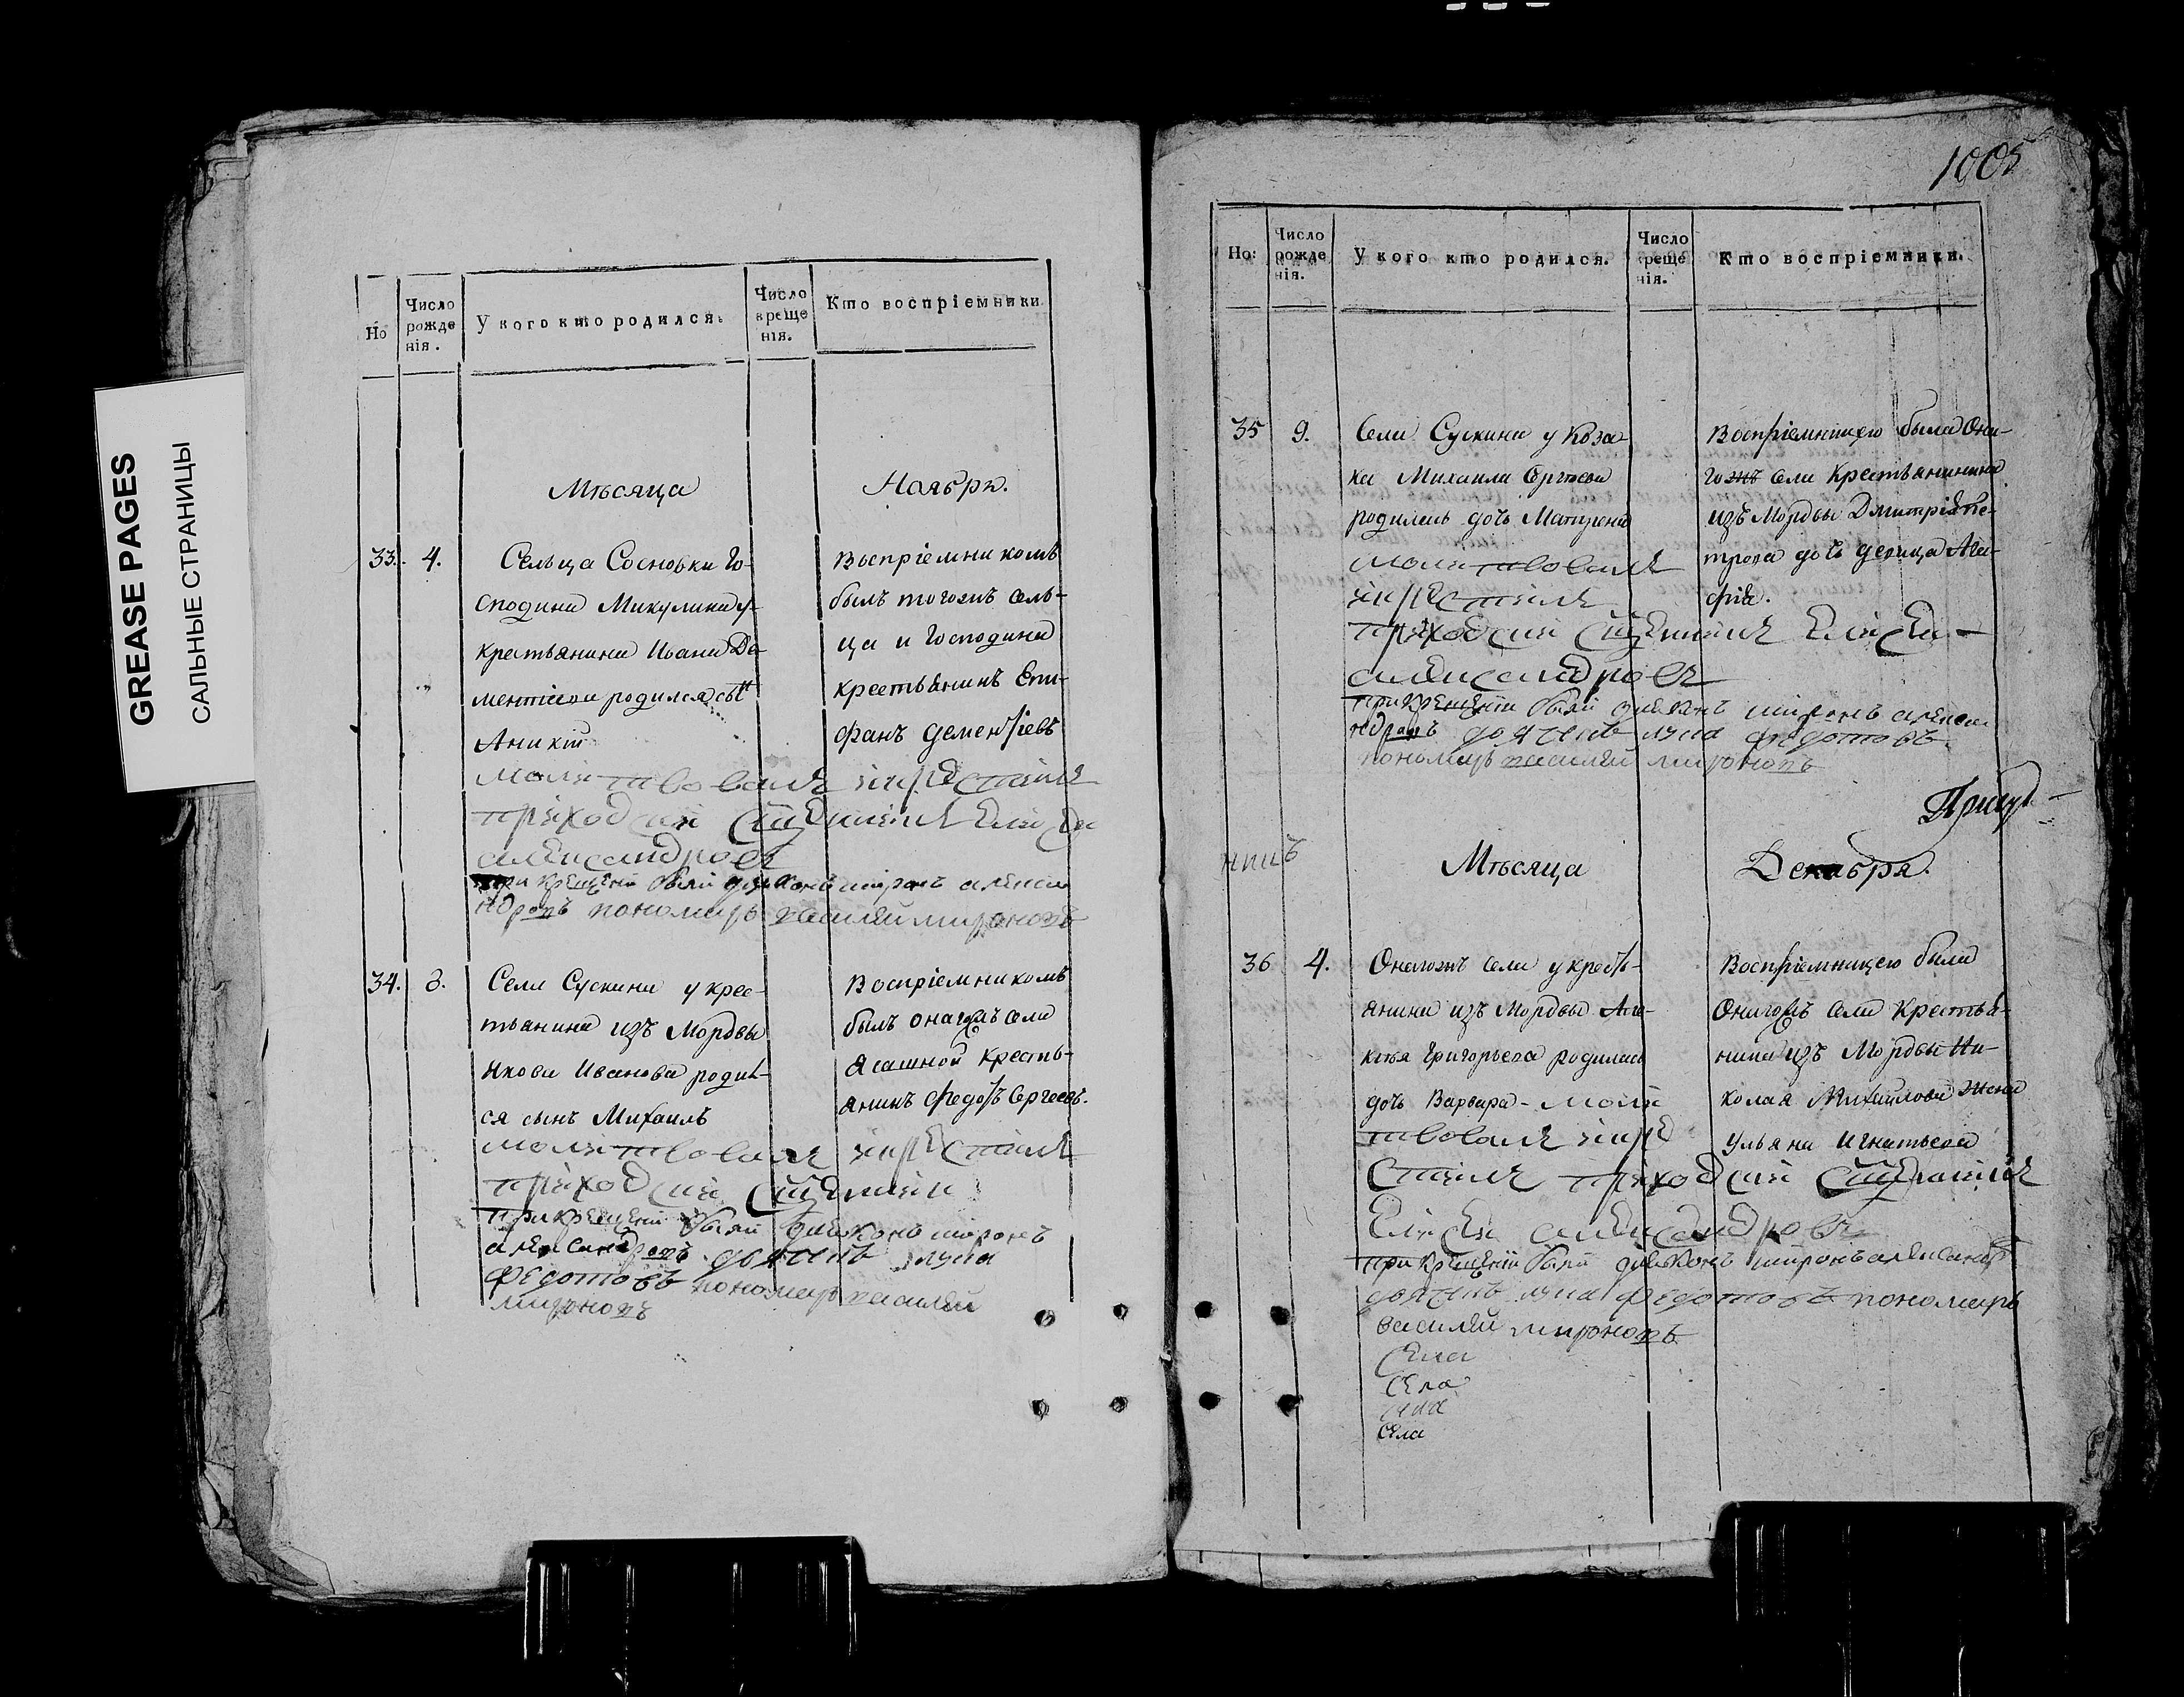 GREASE PAGES
САЛЬНЫЕ СТРАНИЦЫ
Но
Число рожденія.
У кого кто родился.
Число крещенія.
Кто воспріемники
Мѣсяца Ноября.
33. 4.
Сельца Сосновки Го-
сподина Микулина у
крестьянина Иоана Де-
ментіева родился сынъ
Аникій
молитвовалъ и крестилъ
приходскій священникъ Елисей
александровъ
при крещеніи были диаконъ миронъ алекса
ндровъ пономарь василей мироновъ
Воспріемникомъ
былъ тогожъ сель-
ца и Господина
крестьянинъ Епи-
фанъ Дементьевъ
34. 8.
Села Сускина у крес-
тьянина изъ Мордвы
Якова Иванова родил-
ся сынъ Михаилъ
молитвовалъ и крестилъ
приходскій священникъ
при крещеніи были диаконъ миронъ
александровъ дьячекъ лука
федотовъ пономарь василей
мироновъ
Воспріемникомъ
былъ онагожъ села
Ясашной кресть-
янинъ Федотъ Сергеевъ.
1005
Но:
Число рожденія.
У кого кто родился.
Число крещенія.
Кто воспріемники.
35 9.
Села Сускина у Коза-
ка Михаила Сергеева
родилась дочь Матрена
молитвовалъ
и крестилъ
приходскій священникъ Елисей
александровъ
при крещеніи были диаконъ миронъ алекса
ндровъ дьячекъ лука федотовъ
пономарь василей мироновъ
Воспріемницею была Она-
гожъ села Крестьянина
изъ Мордвы Дмитрія Пе-
трова дочь девица Ага-
фія.
Мѣсяца Декабря.
36 4.
Онагожъ села у кресть-
янина изъ Мордвы
Григорьева родилась
дочь Варвара - моли
твовалъ и кре
стилъ приходскій священникъ
Елисей александровъ
при крещеніи были диаконъ миронъ александр
дьячекъ лука федотовъ пономарь
василей мироновъ
Села
Села
села
Села
Воспріемницею была
Онагожъ села Крестья-
нина изъ Мордвы Ни-
колая Михайлова жена
Ульяна Игнатьева